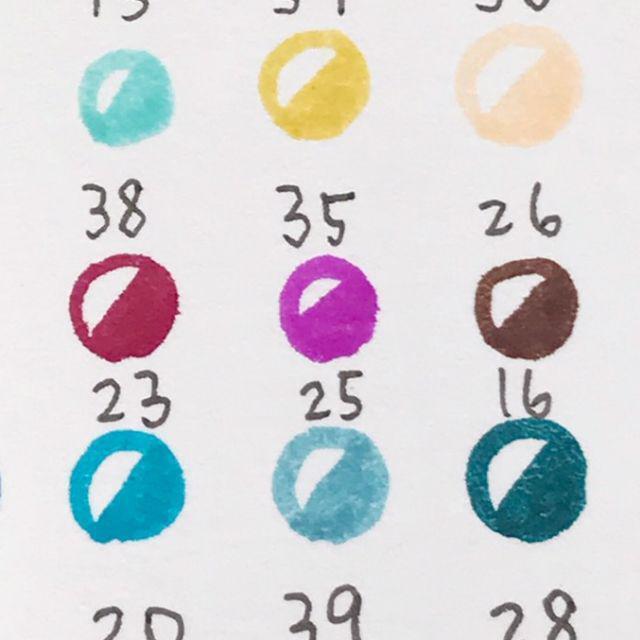 38 35 26
23 25 16
20 39 28